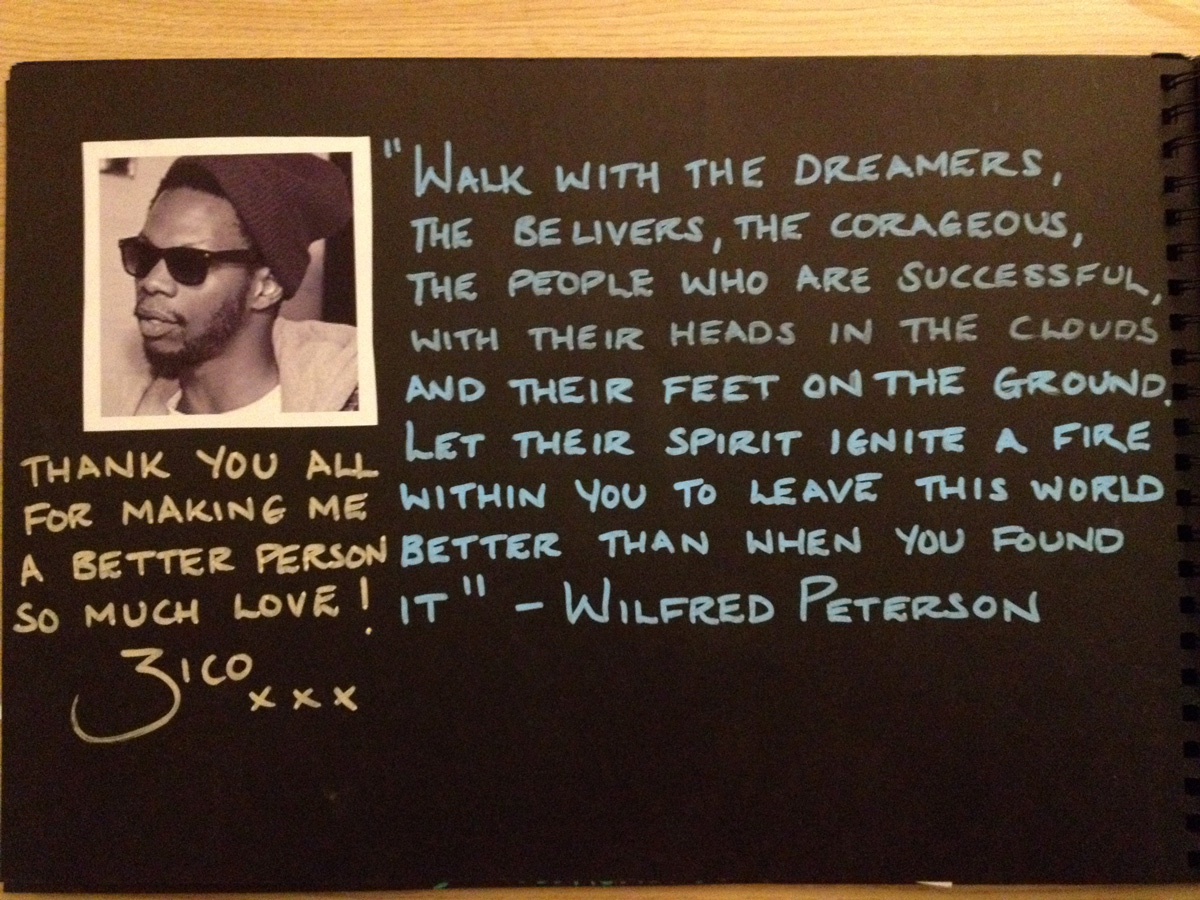 "WALK WITH THE DREAMERS,
THE BELIVERS, THE CORAGEOUS,
THE PEOPLE WHO ARE SUCCESSFUL,
WITH THEIR HEADS IN THE CLOUDS
AND THEIR FEET ON THE GROUND.
LET THEIR SPIRIT IGNITE A FIRE
WITHIN YOU TO LEAVE THIS WORLD
BETTER THAN WHEN YOU FOUND
IT" - WILFRED PETERSON
THANK YOU ALL
FOR MAKING ME
A BETTER PERSON
SO MUCH LOVE!
ZICO xxx